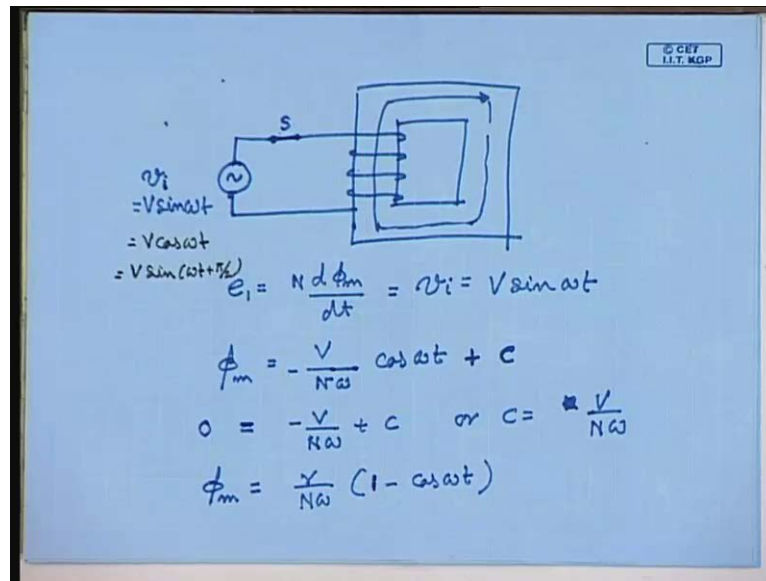 © CET
I.I.T. KGP
S
~
v_i
= V sin ωt
= V cos ωt
= V sin (ωt + π/2)
e₁ = N dϕ_m / dt = v_i = V sin ωt
ϕ_m = - V/Nω cos ωt + C
0 = - V/Nω + C or C = V/Nω
ϕ_m = V/Nω (1 - cos ωt)